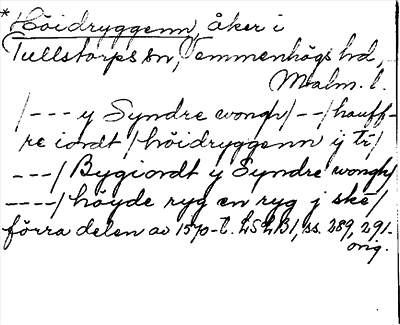 *Höidryggenn, åker i
Tullstorps sn, Vemmenhögs hd,
Malm. l.
/--- y Syndre wongh/--/hauff-
re iordt/höidryggenn ij tr/
---/Bygiordt y Syndre wongh/
----/höyde ryg en ryg j ske/
förra delen av 1570-t. LSLB1, ss. 289, 291.
orig.